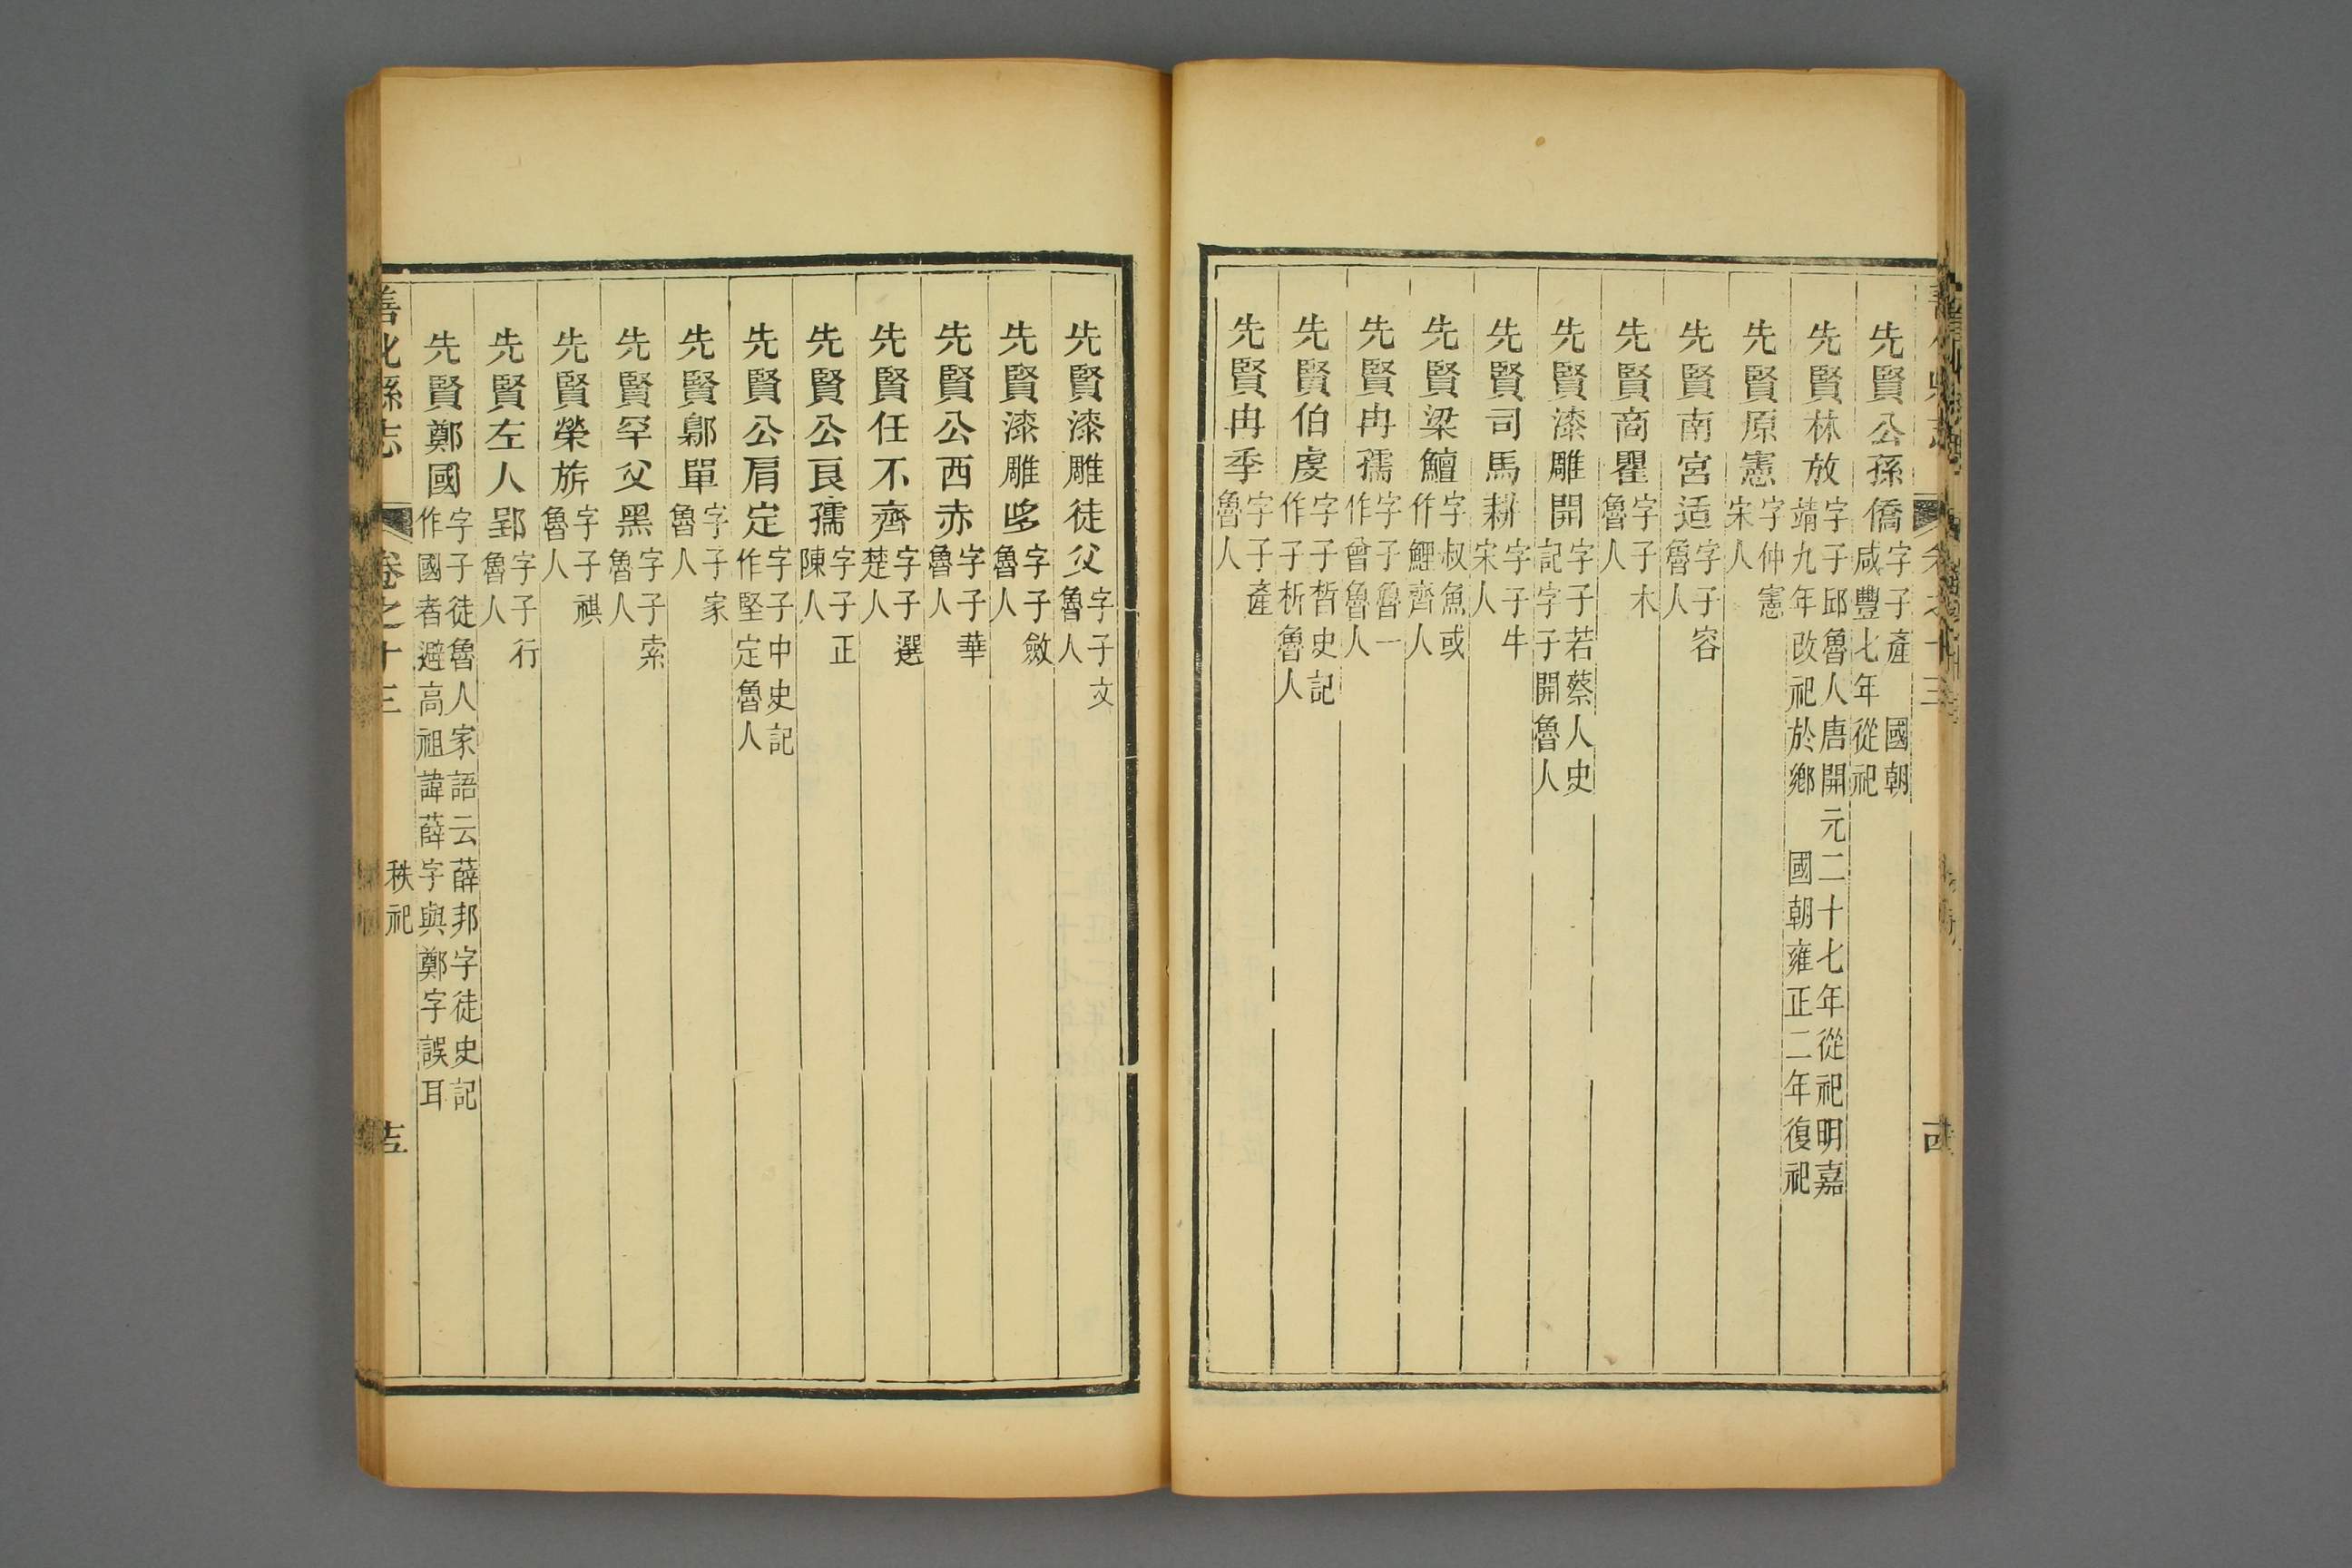 先賢公孫僑字子產　國朝咸豐七年從祀
先賢林放字子邱魯人唐開元二十七年從祀明嘉靖九年改祀於鄉　國朝雍正二年復祀
先賢原憲字仲憲宋人
先賢南宮适字子容魯人
先賢商瞿字子木魯人
先賢漆雕開字子若蔡人史記字子開魯人
先賢司馬耕字子牛宋人
先賢梁鱣字叔魚或作鯉齊人
先賢冉孺字子魯一作曾魯人
先賢伯虔字子晳史記作子析魯人
先賢冉季字子產魯人
先賢漆雕徒父字子文魯人
先賢漆雕哆字子斂魯人
先賢公西赤字子華魯人
先賢任不齊字子選楚人
先賢公良孺字子正陳人
先賢公肩定字子中史記作堅定魯人
先賢鄡單字子家魯人
先賢罕父黑字子索魯人
先賢榮旂字子祺魯人
先賢左人郢字子行魯人
先賢鄭國字子徒魯人家語云薛邦字徒史記作國者避高祖諱薛字與鄭字誤耳
善化縣志　卷之十三　秩祀　十五